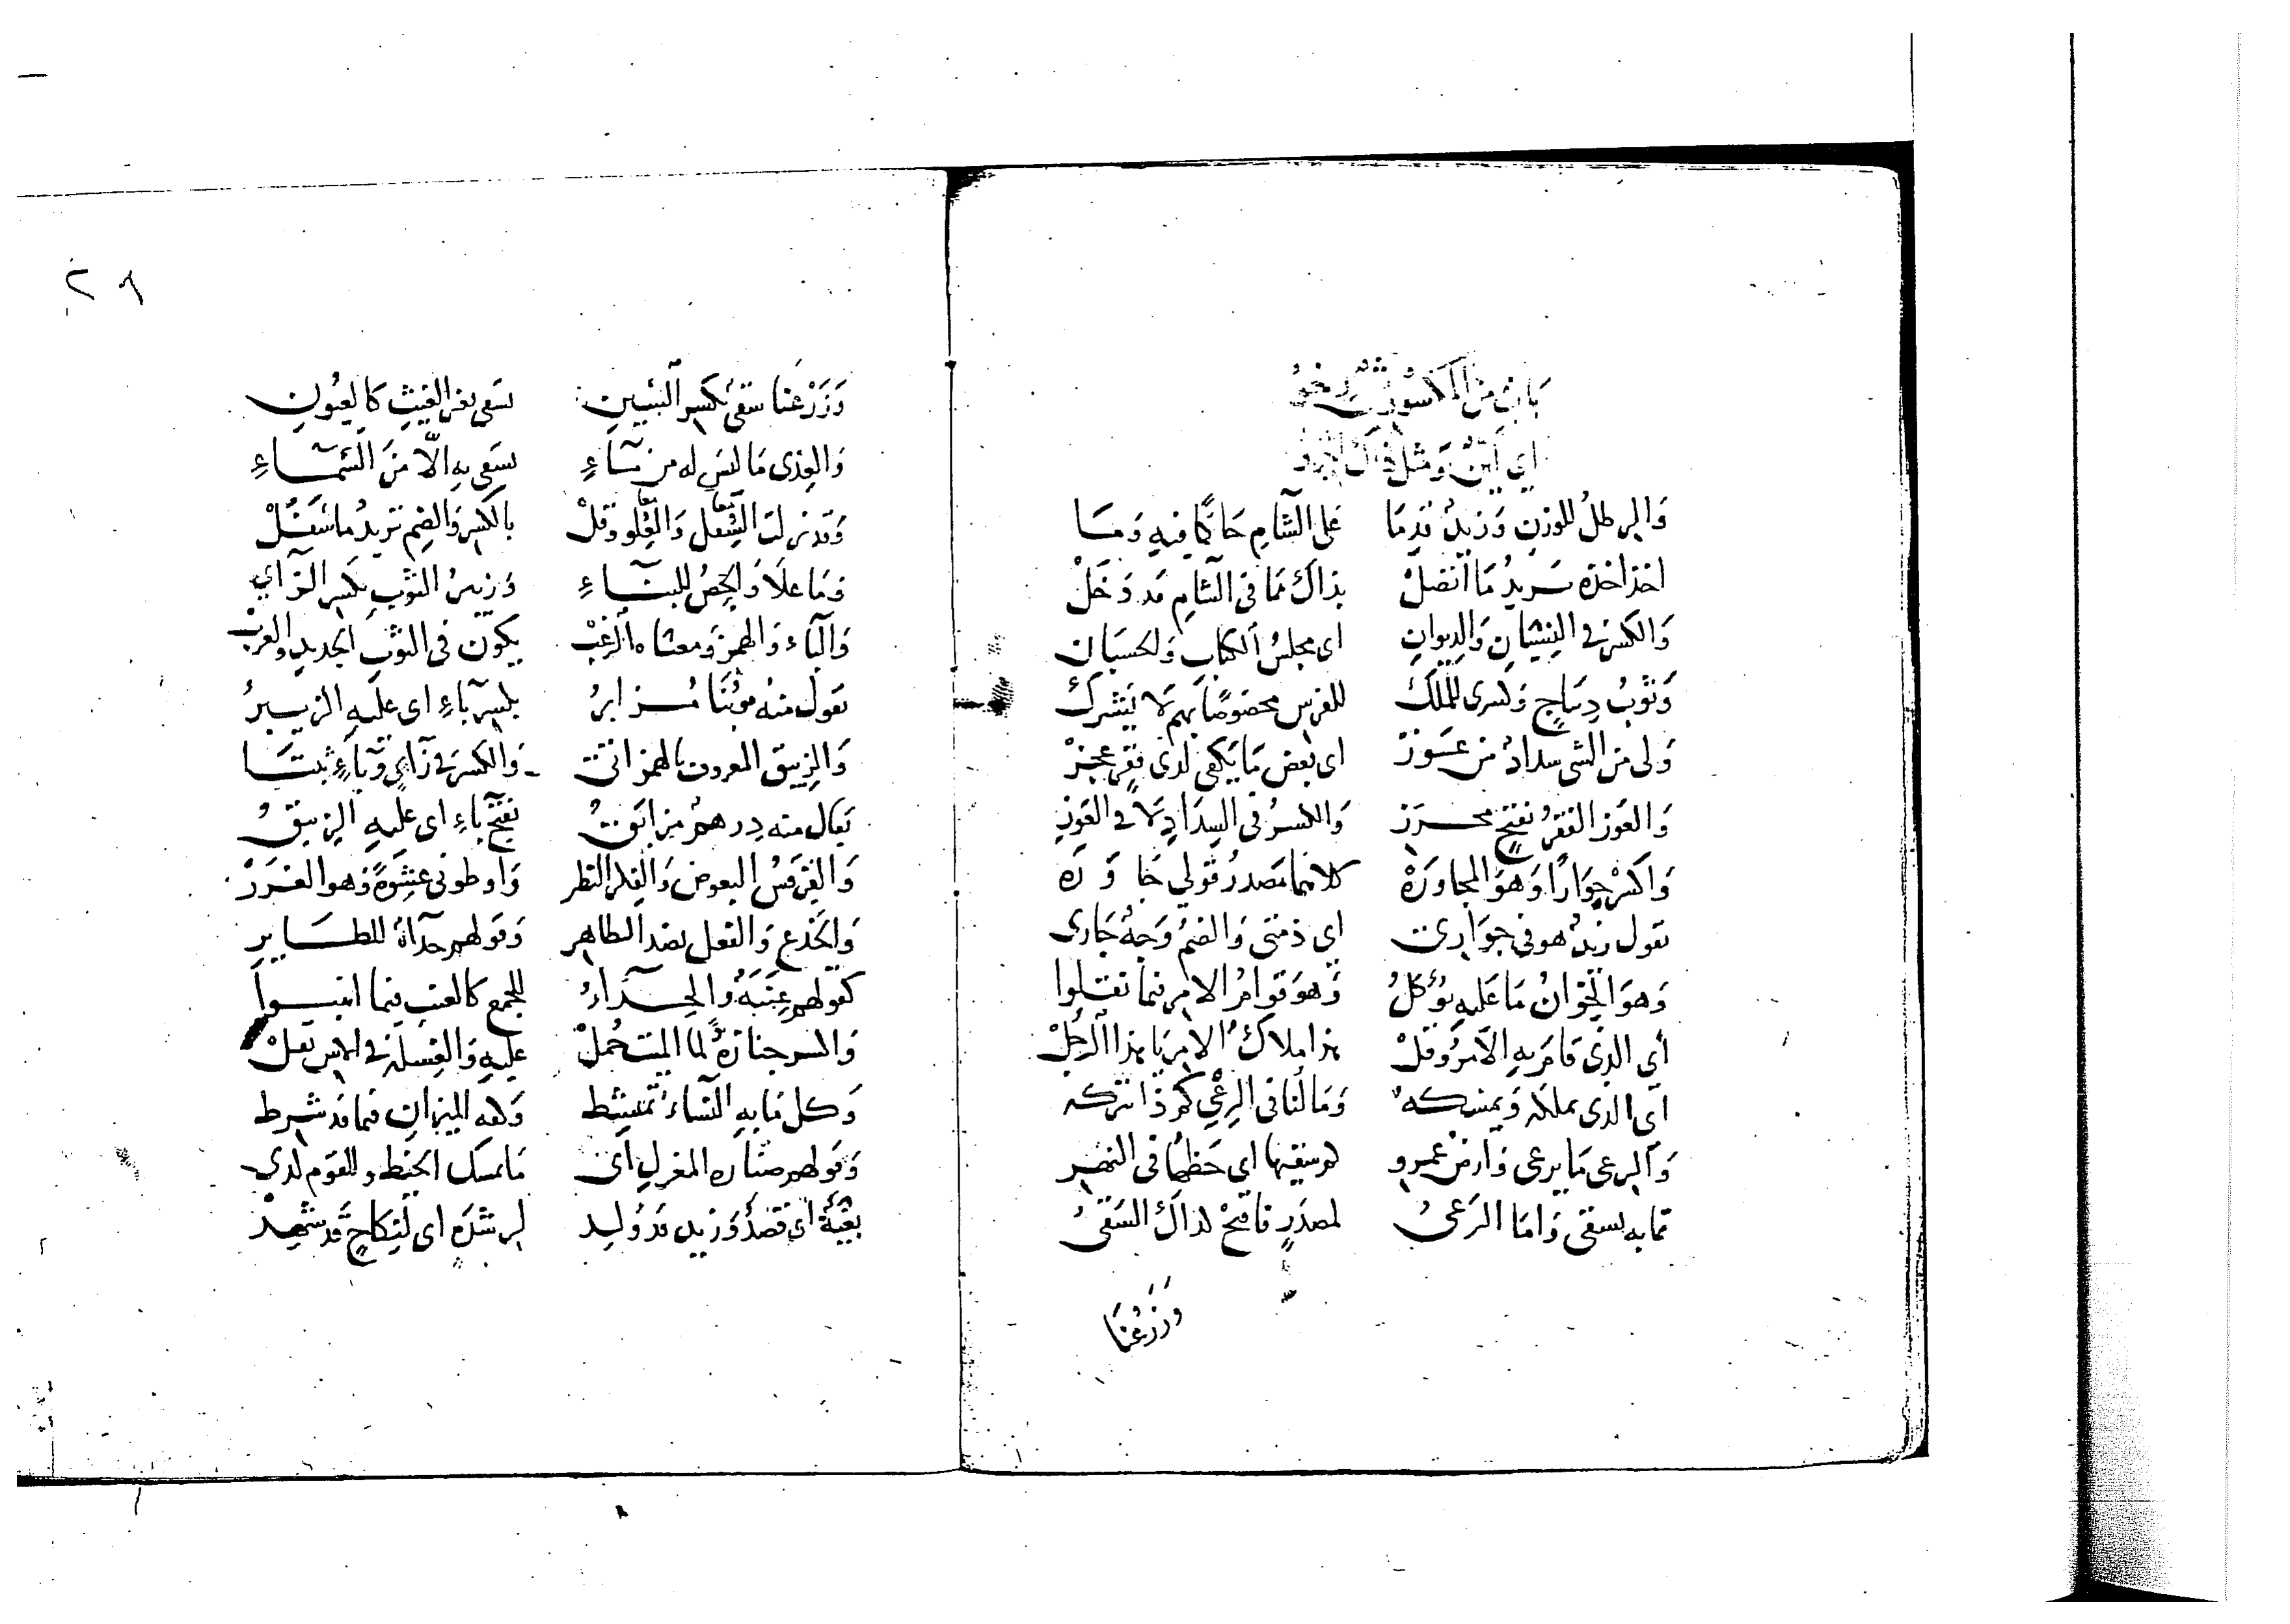 باب من المكسور
اي لين ومثل ذاك
والرطل للوزن وزيد قدما على الشام حاكما فيه وما
اخذ اخذه يريد ما انفصل بذاك مما في الشام قد دخل
والكسر في النسيان والديوان اى مجلس الكتاب والحسبان
وثوب ديباج وكسرى للملك للفرس مخصوصا بهم لا يشترك
ولى من الشى سداد من عوز اى بعض ما يكفى لدى فقر عجز
والعوز الفقر بفتح محرز والكسر في السداد لا في العوز
واكسر جوارا وهو المجاوره كلاهما مصدر قولي جاوره
تقول زيد هو في جواري اي ذمتى والضم وجه جارى
وهو الخوان ما عليه يؤكل وهو قوام الامر فيما نقلوا
أي الذي قام به الأمر وقل هذا ملاك الامر يا هذا الرجل
اى الذى يملكه ويمسكه وما لنا فى الرعي كم ذا نتركه
والرعى ما يرعى وارض عمرو كم سقيها اى حظها في النهر
مما به يسقى واما الرعى لمصدر فافتح لذاك السقى
وزرعنا
٢٩
وزرعنا سقى بكسر السين يسقى بغير الغيث كالعيون
والعذى ما ليس له من ماء يسقى به الا من السماء
وقد نزلت السفل والعلو وقل بالكسر والضم تريد ما سفل
وما علا والجص للبناء وزئبر الثوب بكسر الزاي
والباء والهمز ومعناه الزغب يكون في الثوب الجديد والعرب
تقول منه ثوبنا مزابر بكسر باء اى عليه الزيبر
والزيبق المعروف بالهمز اتى والكسر في زاي وباء ثبتا
يقال منه درهم مزابق بفتح باء اى عليه الزيبق
والقرقس البعوض والفكر النظر واوطوني عشوة وهو الغرر
والجذع والفعل بضد الظاهر وقولهم حدأة للطاير
كقولهم عنبة والحداء للجمع كالعنب فيما انبوا
واكسر جنازة لما الميت حمل عليه والغسلة في الراس تعل
وكل ما به النساء تمتشط وكفه الميزان فيما قد شرط
وقولهم صناره المغزل اى ما يمسك الخيط وللقوم لدي
بغية اى قصد وزيد قد ولد لرشدة اى لنكاح قد شهد